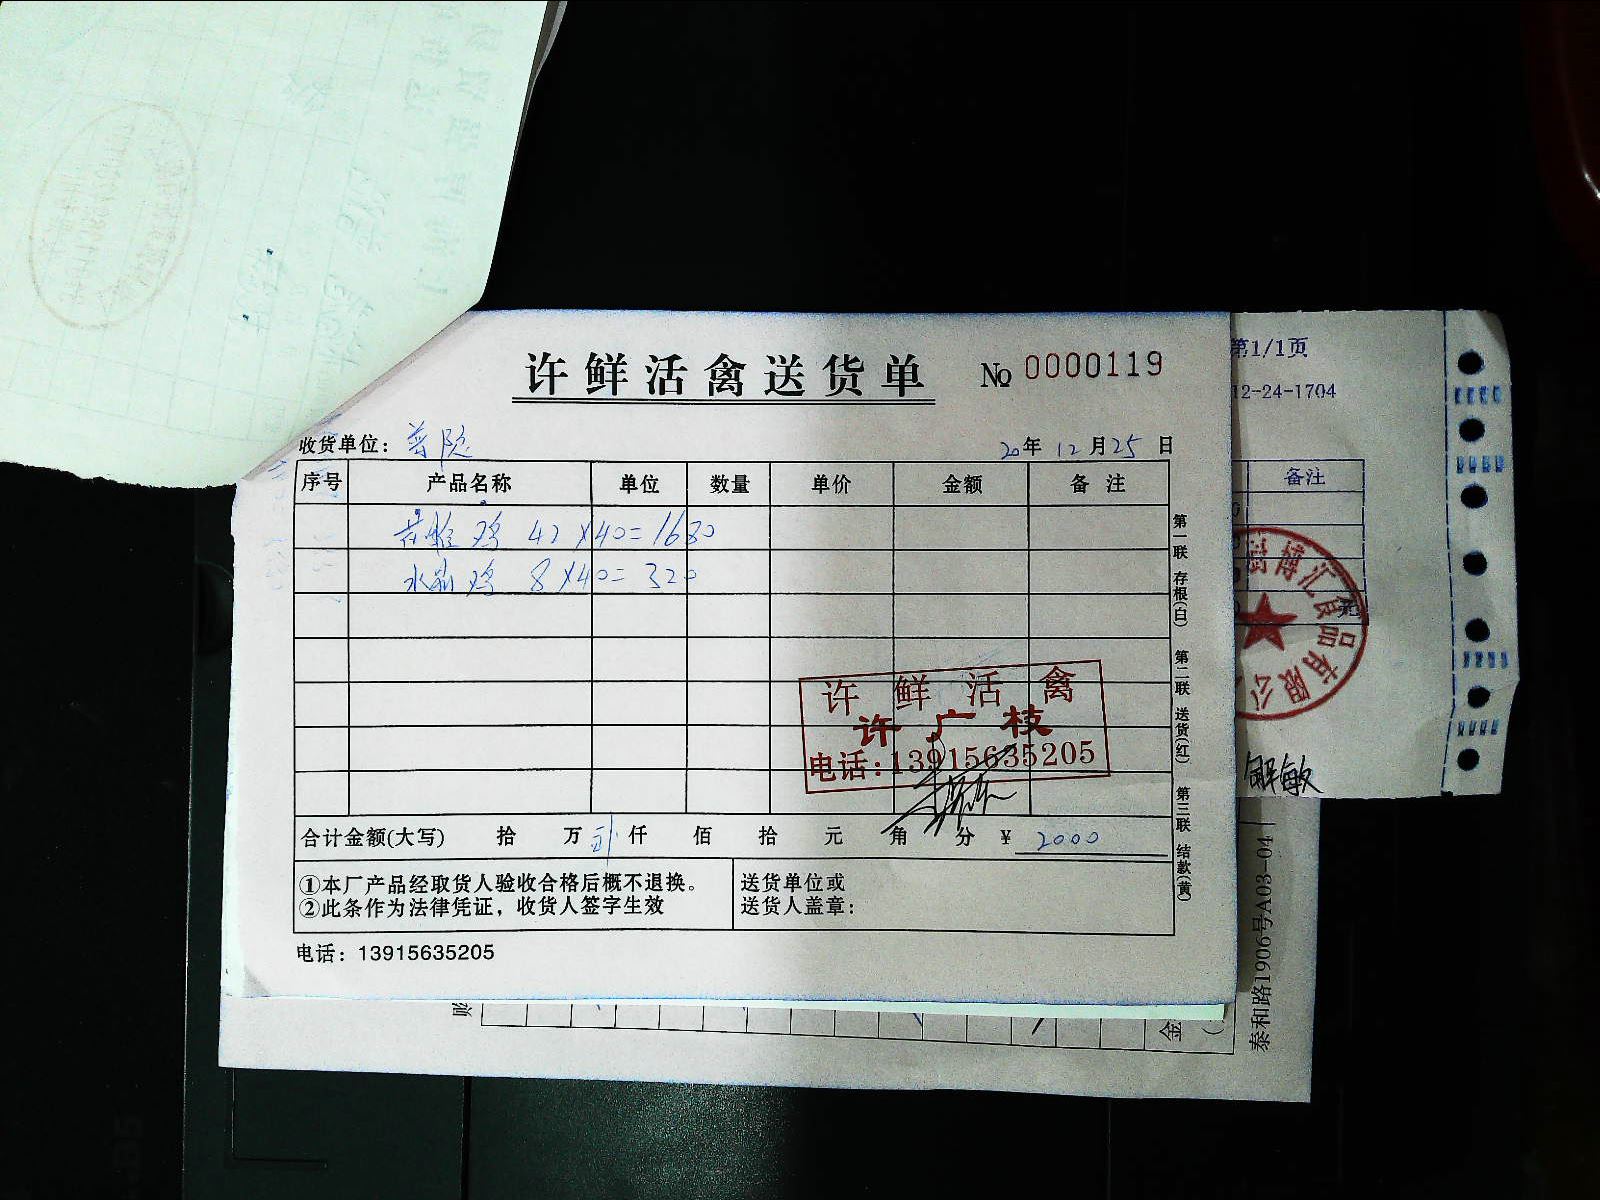 许鲜活禽送货单 № 0000119
收货单位：普陀 20年12月25日
序号 产品名称 单位 数量 单价 金额 备注
鸡 42×40=1680
水 鸡 8×40=320
许鲜活禽
许广枝
电话:13915635205
合计金额(大写) 拾 万 仟 佰 拾 元 角 分 ¥ 2000
①本厂产品经取货人验收合格后概不退换。
②此条作为法律凭证，收货人签字生效
送货单位或
送货人盖章：
电话：13915635205
第一联 存根(白) 第二联 送货(红) 第三联 结款(黄)
第1/1页
12-24-1704
备注
博汇食品有限公
解敏
泰和路1906号A03-04
金